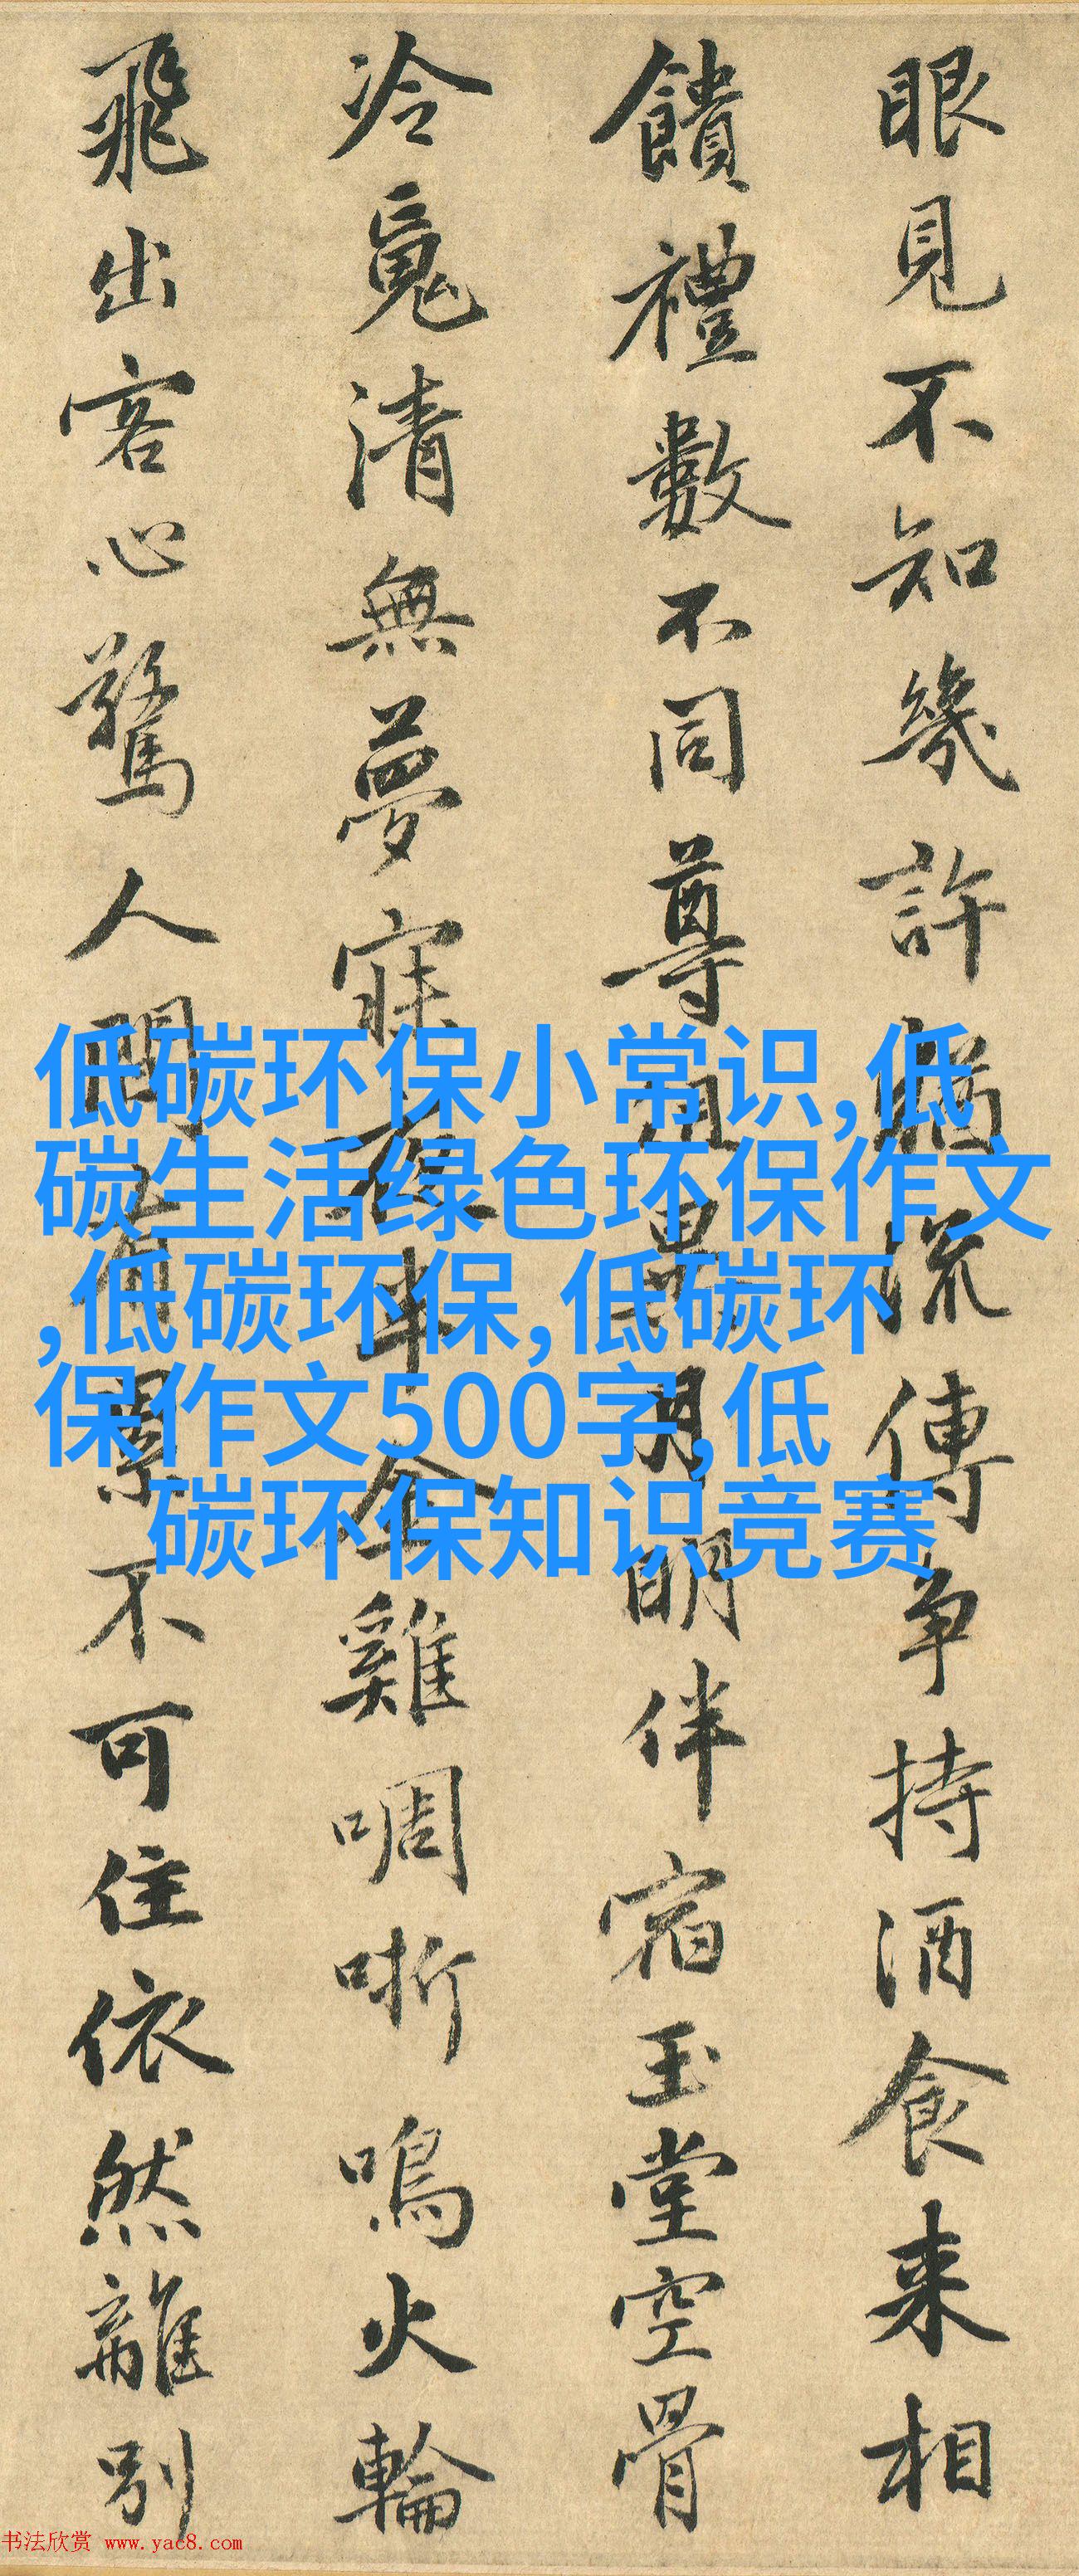 眼見不知幾許猶流傳争持酒食来相
饋禮數不同尊俎異月明伴宿玉堂空骨
冷魂清無夢寐夜半金雞啁哳鳴火輪
飛出客心驚人間有累不可住依然離別
低碳环保小常识,低
碳生活绿色环保作文
,低碳环保,低碳环
保作文500字,低
碳环保知识竞赛
书法欣赏 www.yac8.com